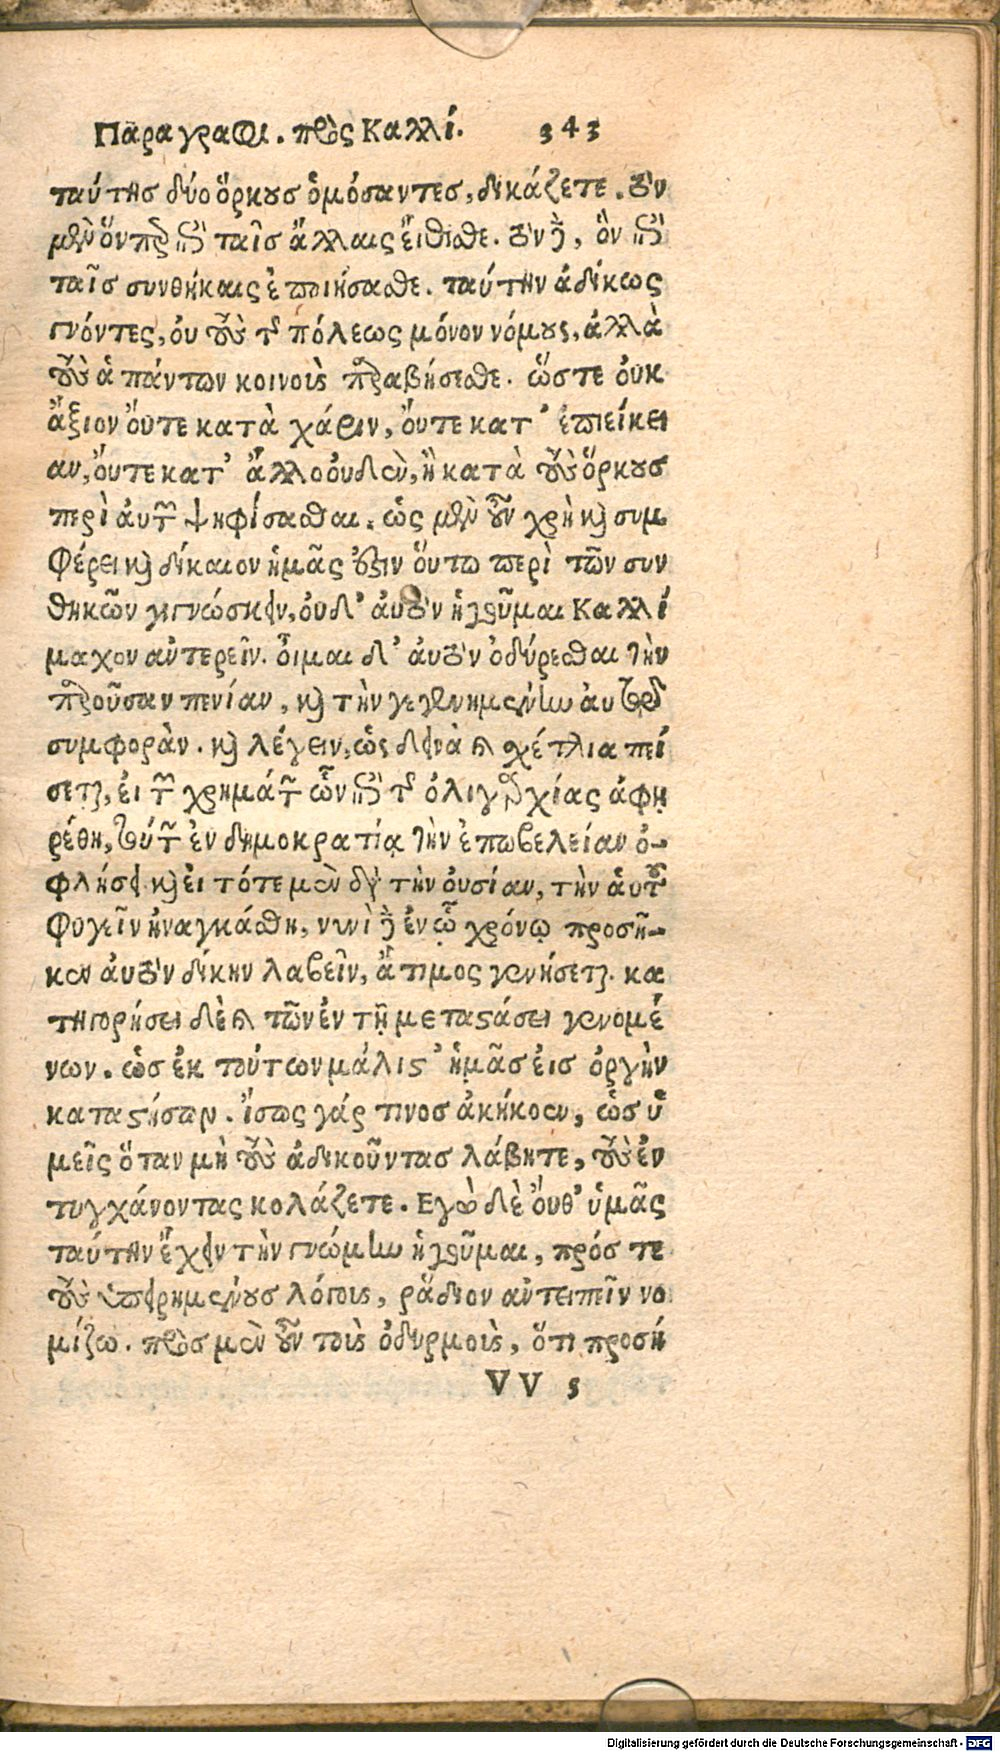 Παραγραφή. πρὸς Καλλί. 343
ταύτης δύο ὅρκους ὀμόσαντες, δικάζετε. τὸν
μὲν ὅνπερ ἐπὶ ταῖς ἄλλαις εἴθισθε. τὸν δὲ, ὃν ἐπὶ
ταῖς συνθήκαις ἐποιήσασθε. ταύτην ἀδίκως
γνόντες, οὐ τοὺς τῆς πόλεως μόνον νόμους, ἀλλὰ
τοὺς ἁπάντων κοινοὺς παραβήσεσθε. ὥστε οὐκ
ἄξιον οὔτε κατὰ χάριν, οὔτε κατ' ἐπιείκει
αν, οὔτε κατ' ἄλλο οὐδὲν, ἢ κατὰ τοὺς ὅρκους
περὶ αὐτῶν ψηφίσασθαι. ὡς μὲν οὖν χρὴ καὶ συμ
φέρει καὶ δίκαιον ἡμᾶς ἐστιν οὕτω περὶ τῶν συν
θηκῶν γιγνώσκειν, οὐδ' αὐτὸν ἡγοῦμαι Καλλί
μαχον ἀντερεῖν. οἶμαι δ' αὐτὸν ὀδύρεσθαι τὴν
παροῦσαν πενίαν, καὶ τὴν γεγενημένην αὐτῷ
συμφορὰν. καὶ λέγειν, ὡς δεινὰ καὶ σχέτλια πεί
σεται, εἰ τῶν χρημάτων ὧν ἐπὶ τῆς ὀλιγαρχίας ἀφῃ
ρέθη, τούτων ἐν δημοκρατίᾳ τὴν ἐπωβελείαν ὀ-
φλήσει καὶ εἰ τότε μὲν διὰ τὴν οὐσίαν, τὴν αὑτοῦ
φυγεῖν ἠναγκάσθη, νυνὶ δὲ ἐν ᾧ χρόνῳ προσῆ-
κεν αὐτὸν δίκην λαβεῖν, ἄτιμος γενήσεται. κα
τηγορήσει δὲ καὶ τῶν ἐν τῇ μεταστάσει γενομέ
νων. ὡς ἐκ τούτων μάλιστ' ἡμᾶς εἰς ὀργὴν
καταστήσων. ἴσως γάρ τινος ἀκήκοεν, ὡς ὑ
μεῖς ὅταν μὴ τοὺς ἀδικοῦντας λάβητε, τοὺς ἐν
τυγχάνοντας κολάζετε. Εγὼ δὲ οὔθ' ὑμᾶς
ταύτην ἔχειν τὴν γνώμην ἡγοῦμαι, πρός τε
τοὺς ὑπειρημένους λόγους, ῥᾴδιον ἀντειπεῖν νο
μίζω. πρὸς μὲν οὖν τοὺς ὀδυρμοὺς, ὅτι προσή
VV 5
Digitalisierung gefördert durch die Deutsche Forschungsgemeinschaft - DFG